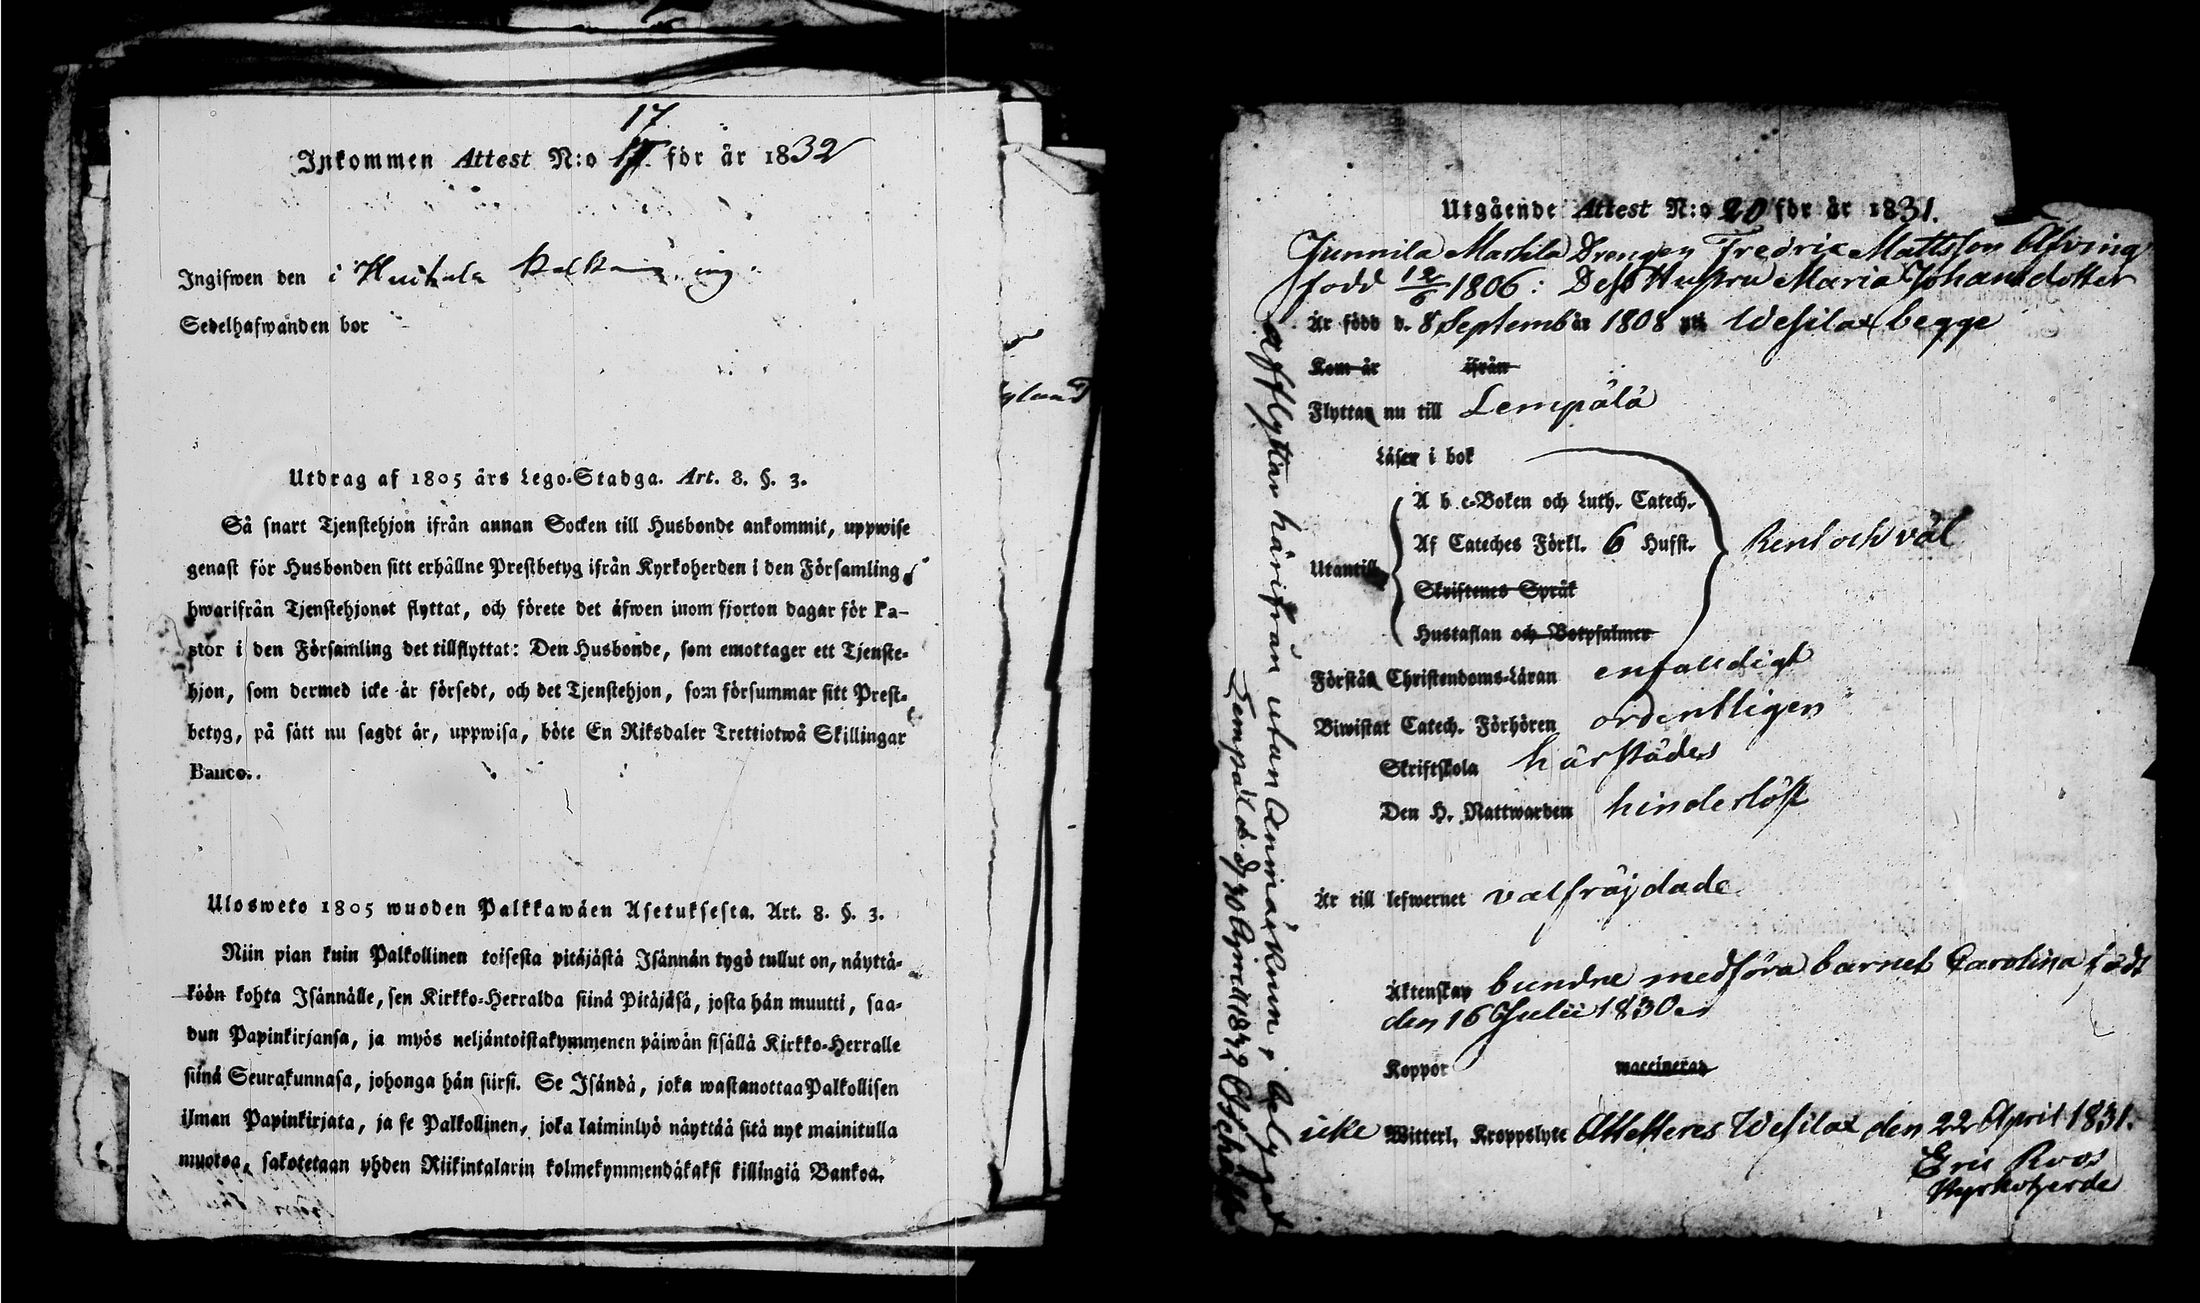 17
Inkommen Attest N:o för år 1832
Ingifwen den i
Sedelhafwanden bor
Utdrag af 1805 års Lego-Stadga. Art. 8. §. 3.
Så snart Tjenstehjon ifrån annan Socken till Husbonde ankommit, uppwise
genast för Husbonden sitt erhållne Prestbetyg ifrån Kyrkoherden i den Församling
hwarifrån Tjenstehjonet flyttat, och förete det äfwen inom fjorton dagar för Pa-
stor i den Församling det tillflyttat: Den Husbonde, som emottager ett Tjenste-
hjon, som dermed icke är försedt, och det Tjenstehjon, som försummar sitt Prest-
betyg, på sätt nu sagdt är, uppwisa, böte En Riksdaler Trettiotwå Skillingar
Banco.
Ulosweto 1805 wuoden Palkkawäen Asetuksesta. Art. 8. §. 3.
Niin pian kuin Palkollinen toisesta pitäjästä Isännän tygö tullut on, näyttä-
köön kohta Isännälle, sen Kirkko-Herralda siinä Pitäjäsä, josta hän muutti, saa-
dun Papinkirjansa, ja myös neljäntoistakymmenen päiwän sisällä Kirkko-Herralle
siinä Seurakunnasa, johonga hän siirsi. Se Isändä, joka wastanottaa Palkollisen
ilman Papinkirjata, ja se Palkollinen, joka laiminlyö näyttää sitä nyt mainitulla
muotoa, sakotetaan yhden Riikintalarin kolmekymmendäkaksi killingiä Bankoa.
gland
Utgående Attest N:o 20 för år 1831.
Junnila Mattila Drengen Fredric Mattsson Afving
född 12/6 1806: Dess Hustru Maria Johansdotter
Är född d. 8 Septemb. år 1808 uti Wesilax begge
Kom år ifrån
Flytta nu till Lempälä
Läser i bok
A b c-Boken och Luth. Catech.
Af Cateches Förkl. 6 Hufst. Rent och väl
Utantill
Skriftenes Språk
Hustaflan och Botpsalmer
Förstå Christendoms-Läran enfalldigt
Biwistat Catech. Förhören ordentligen
Skriftskola härstädes
Den H. Nattwarden hinderlöst
Är till lefwernet välfräjdade
Äktenskap bundne medföra barnet Carolina född
den 16 Julii 1830
Koppor waccinerad
icke Witterl. Kroppslyte Attesteres Wesilax den 22 April 1831.
Eric Roos
Kyrkoherde
afflyttar härifrån utan Anmärkning, betygat
Lempälä d. 30 April 1832